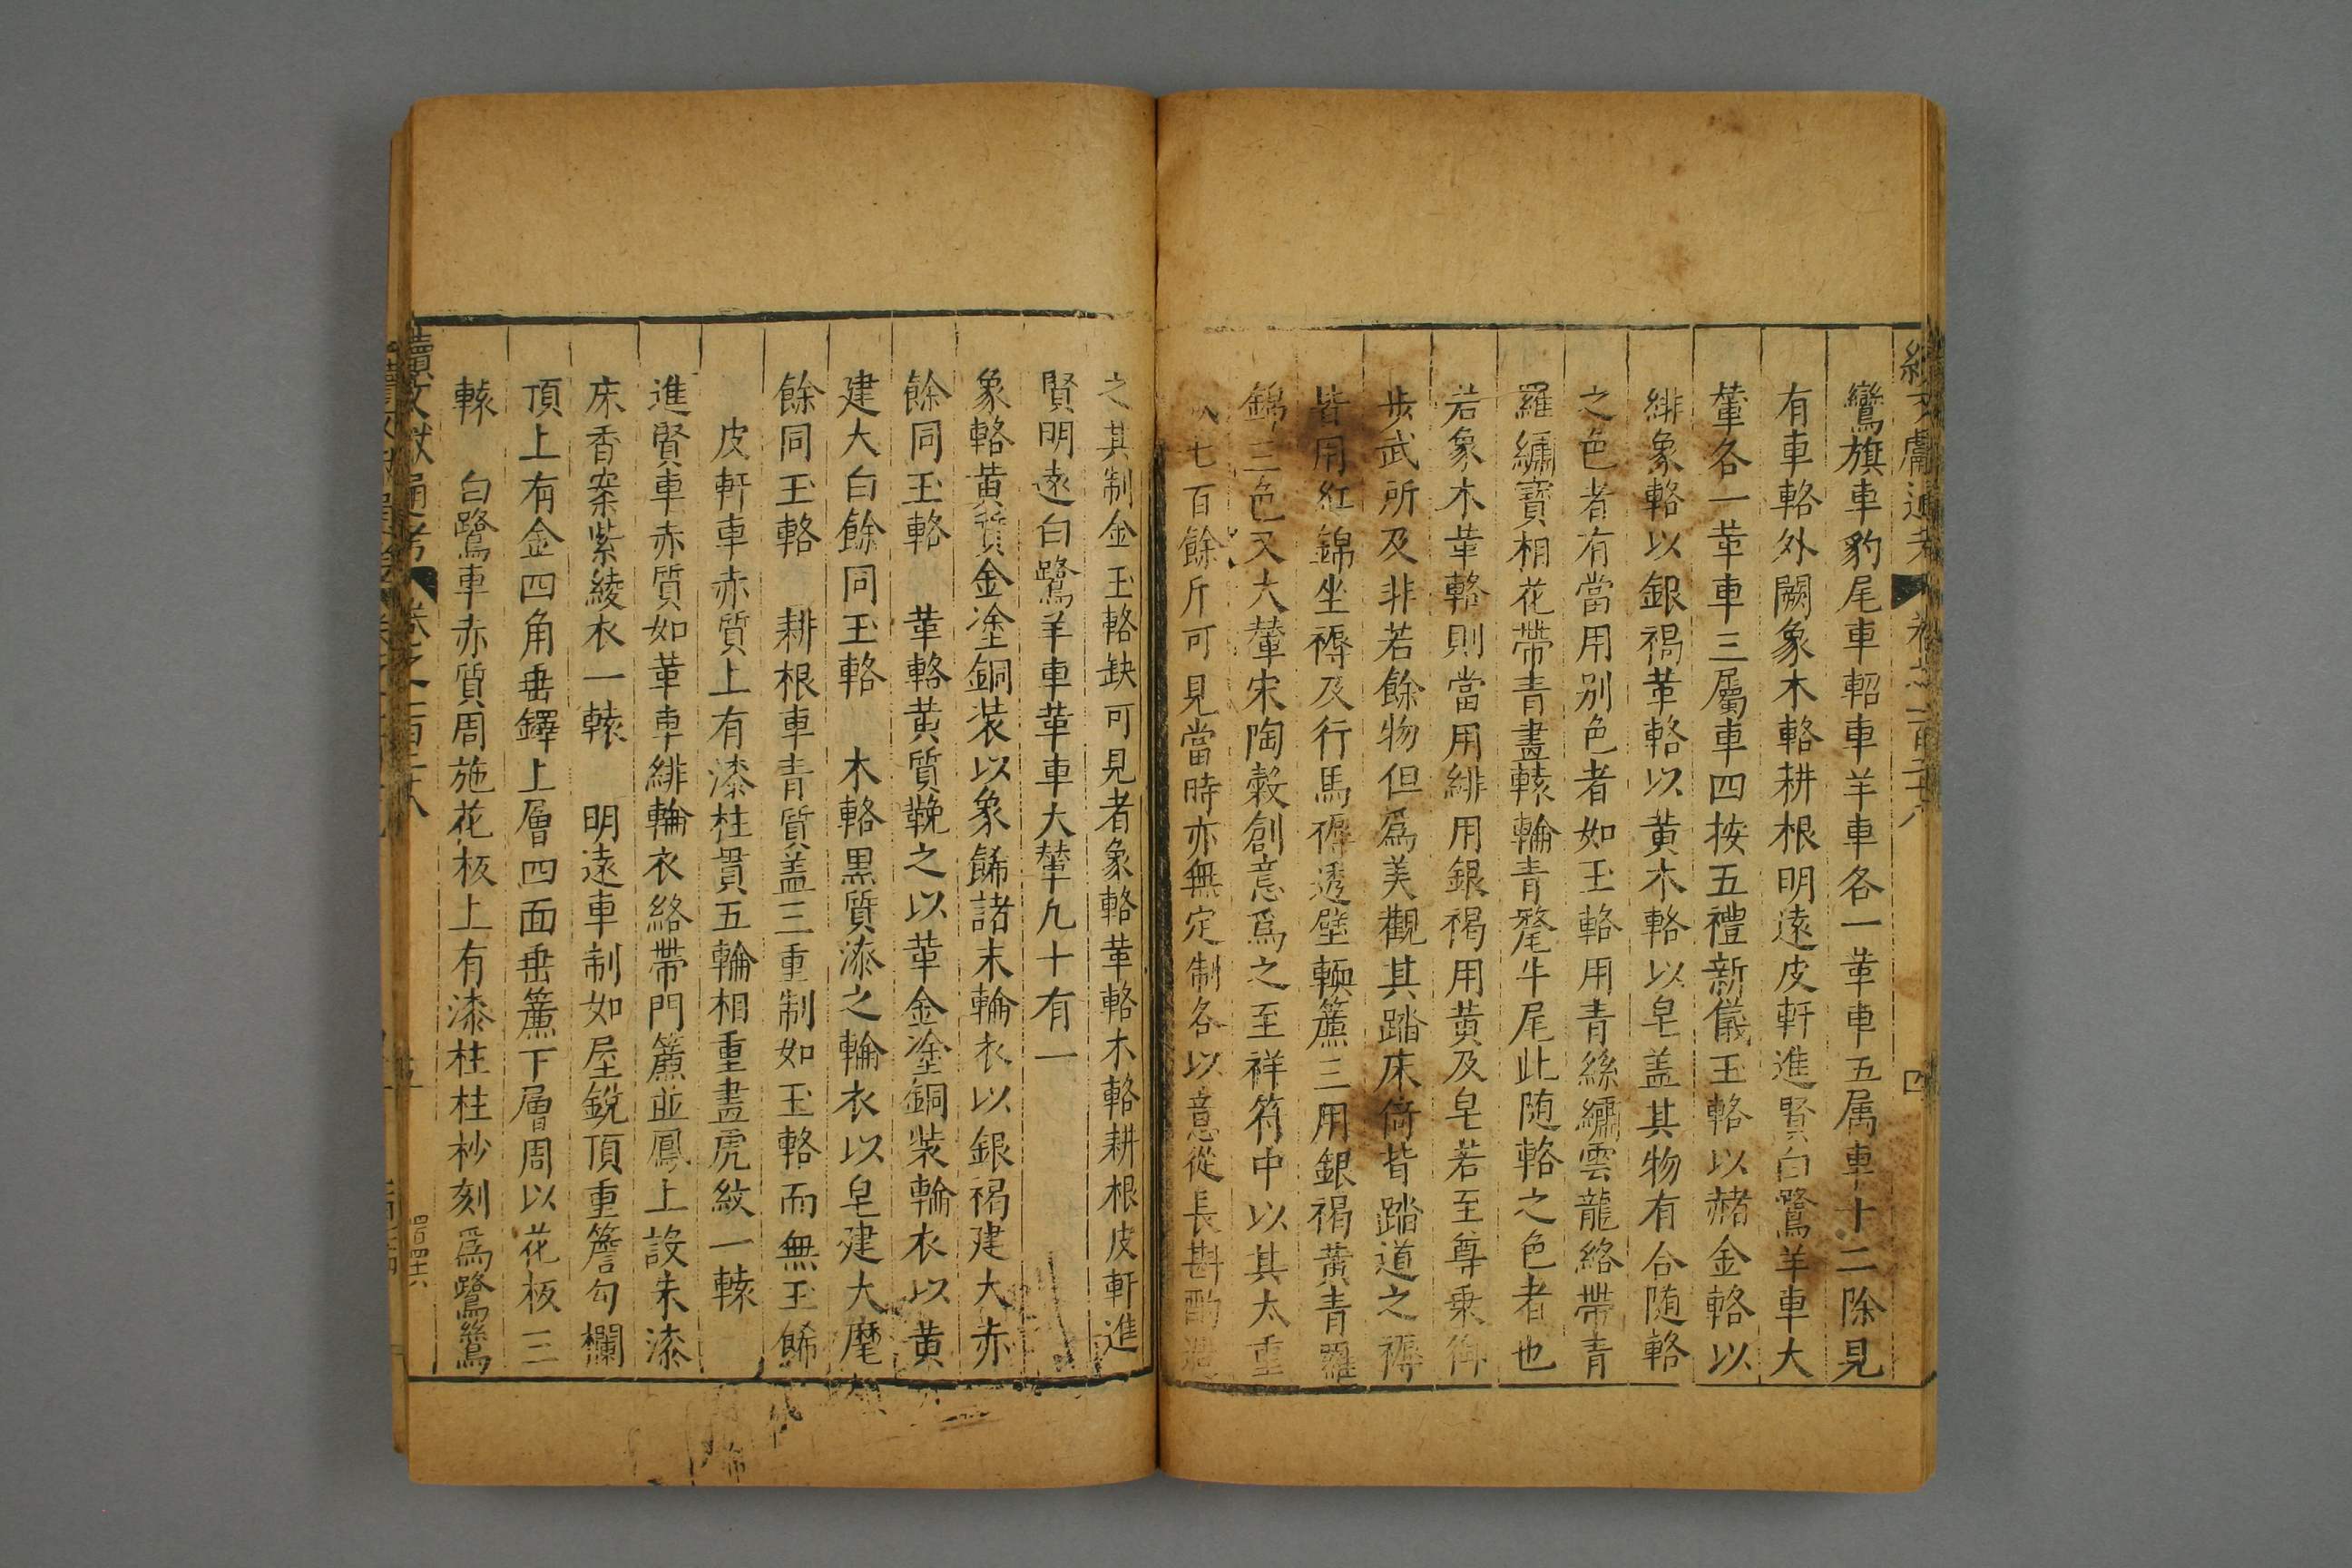 鸞旗車豹尾車軺車羊車各一革車五属車十二除見
有車輅外闕象木輅耕根明遠皮軒進賢白鷺羊車大
輦各一革車三屬車四按五禮新儀玉輅以赭金輅以
緋象輅以銀褐革輅以黄木輅以皂盖其物有合随輅
之色者有當用别色者如玉輅用青絲繡雲龍絡帶青
羅繡寶相花帶青畫轅輪青氂牛尾此随輅之色者也
若象木革輅則當用緋用銀褐用黄及皂若至尊乗御
步武所及非若餘物但爲美觀其踏床倚背踏道之褥
皆用紅錦坐褥及行馬褥透壁輭簾三用銀褐黄青羅
錦三色又大輦宋陶榖創意爲之至祥符中以其太重
七百餘斤可見當時亦無定制各以意從長斟酌造
之其制金玉輅缺可見者象輅革輅木輅耕根皮軒進
賢明遠白鷺羊車革車大輦凡十有一
象輅黄質金塗銅装以象餙諸末輪衣以銀褐建大赤
餘同玉輅　革輅黄質鞔之以革金塗銅装輪衣以黄
建大白餘同玉輅　木輅黒質漆之輪衣以皂建大麾
餘同玉輅　耕根車青質盖三重制如玉輅而無玉餙
皮軒車赤質上有漆柱貫五輪相重畫虎紋一轅
進賢車赤質如革車緋輪衣絡帶門簾並鳳上設朱漆
床香案紫綾衣一轅　明遠車制如屋鋭頂重簷勾欄
頂上有金四角垂鐸上層四面垂簾下層周以花板三
轅　白鷺車赤質周施花板上有漆柱柱杪刻爲鷺鷥
續文献通考　卷之一百二十八